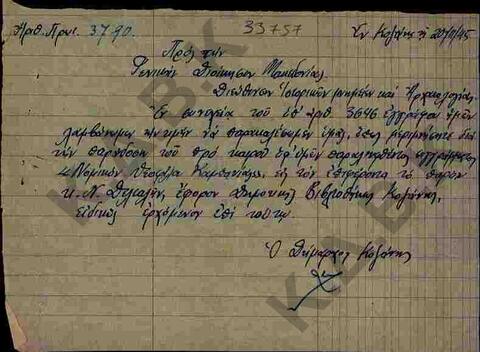 Ἀριθ. Πρωτ. 3790. 33757 Ἐν Κοζάνῃ τῇ 20/11/45
Πρὸς τὴν
Γενικὴν Διοίκησιν Μακεδονίας
Διεύθυνσιν Ἱστορικῶν μνημείων καὶ Ἀρχαιολογίας
Ἐν συνεχείᾳ τοῦ ὑπ' ἀριθ. 3646 ἐγγράφου ἡμῶν
λαμβάνομεν τὴν τιμὴν νὰ παρακαλέσωμεν ὑμᾶς, ὅπως μεριμνήσητε διὰ
τὴν παράδοσιν τοῦ πρὸ καιροῦ ὑφ' ὑμῶν παραληφθέντος
εἰς τὸν ἐπιφέροντα τὸ παρὸν
κ. Ν. Δελιαλῆν, ἔφορον Δημοτικῆς Βιβλιοθήκης Κοζάνης,
εἰδικῶς ἐρχόμενον ἐπὶ τούτῳ.
Ὁ Δήμαρχος Κοζάνης